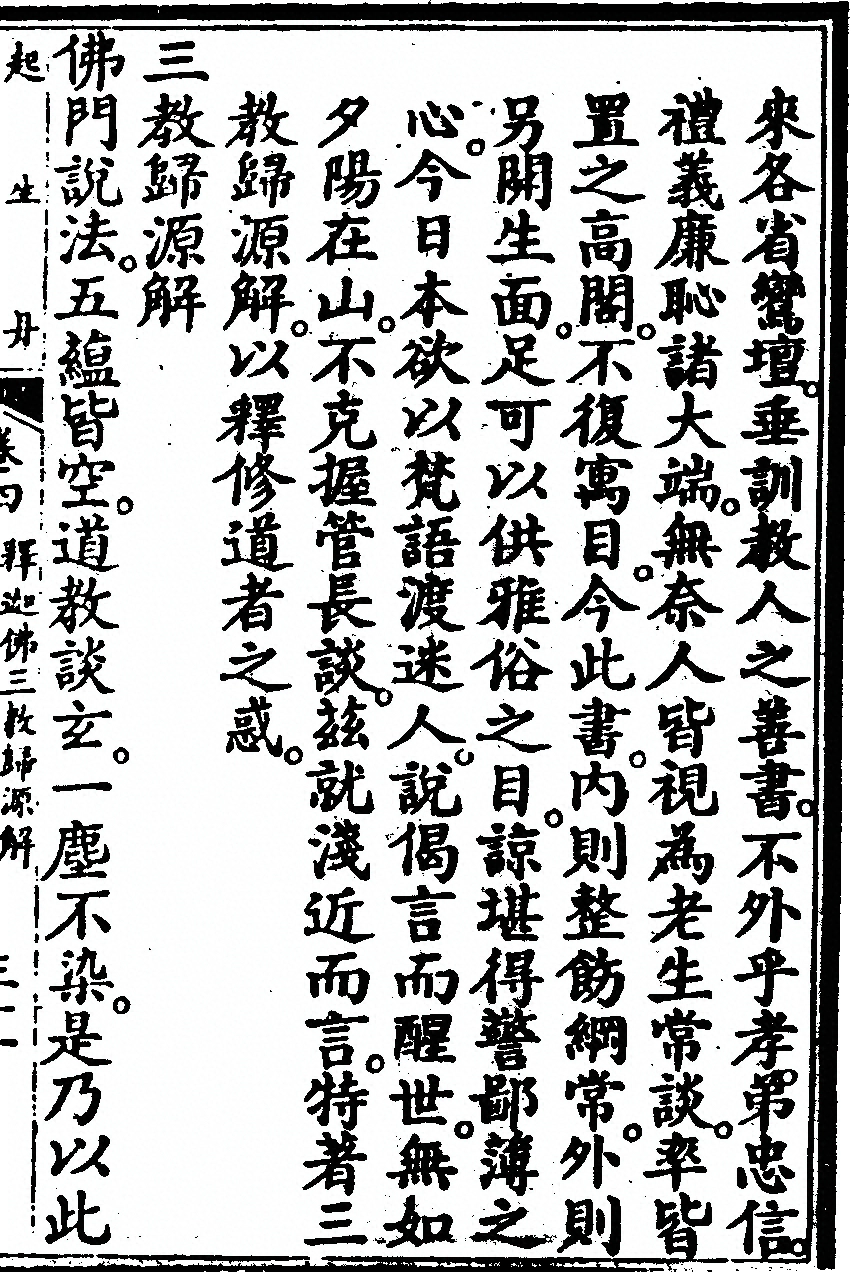 來各省鸞壇。垂訓教人之善書。不外乎孝第。忠信。
禮義廉恥諸大端。無奈人皆視為老生常談。率皆
置之高閣。不復寓目。今此書。內則整飭綱常。外則
另開生面。足可以供雅俗之目。諒堪得警鄙薄之
心。今日本欲以梵語渡迷人。說偈言而醒世。無如
夕陽在山。不克握管長談。茲就淺近而言。特著三
教歸源解。以釋修道者之惑。
三教歸源解
佛門說法。五蘊皆空。道教談玄。一塵不染。是乃以此
起生丹
卷四 釋迦佛三教歸源解